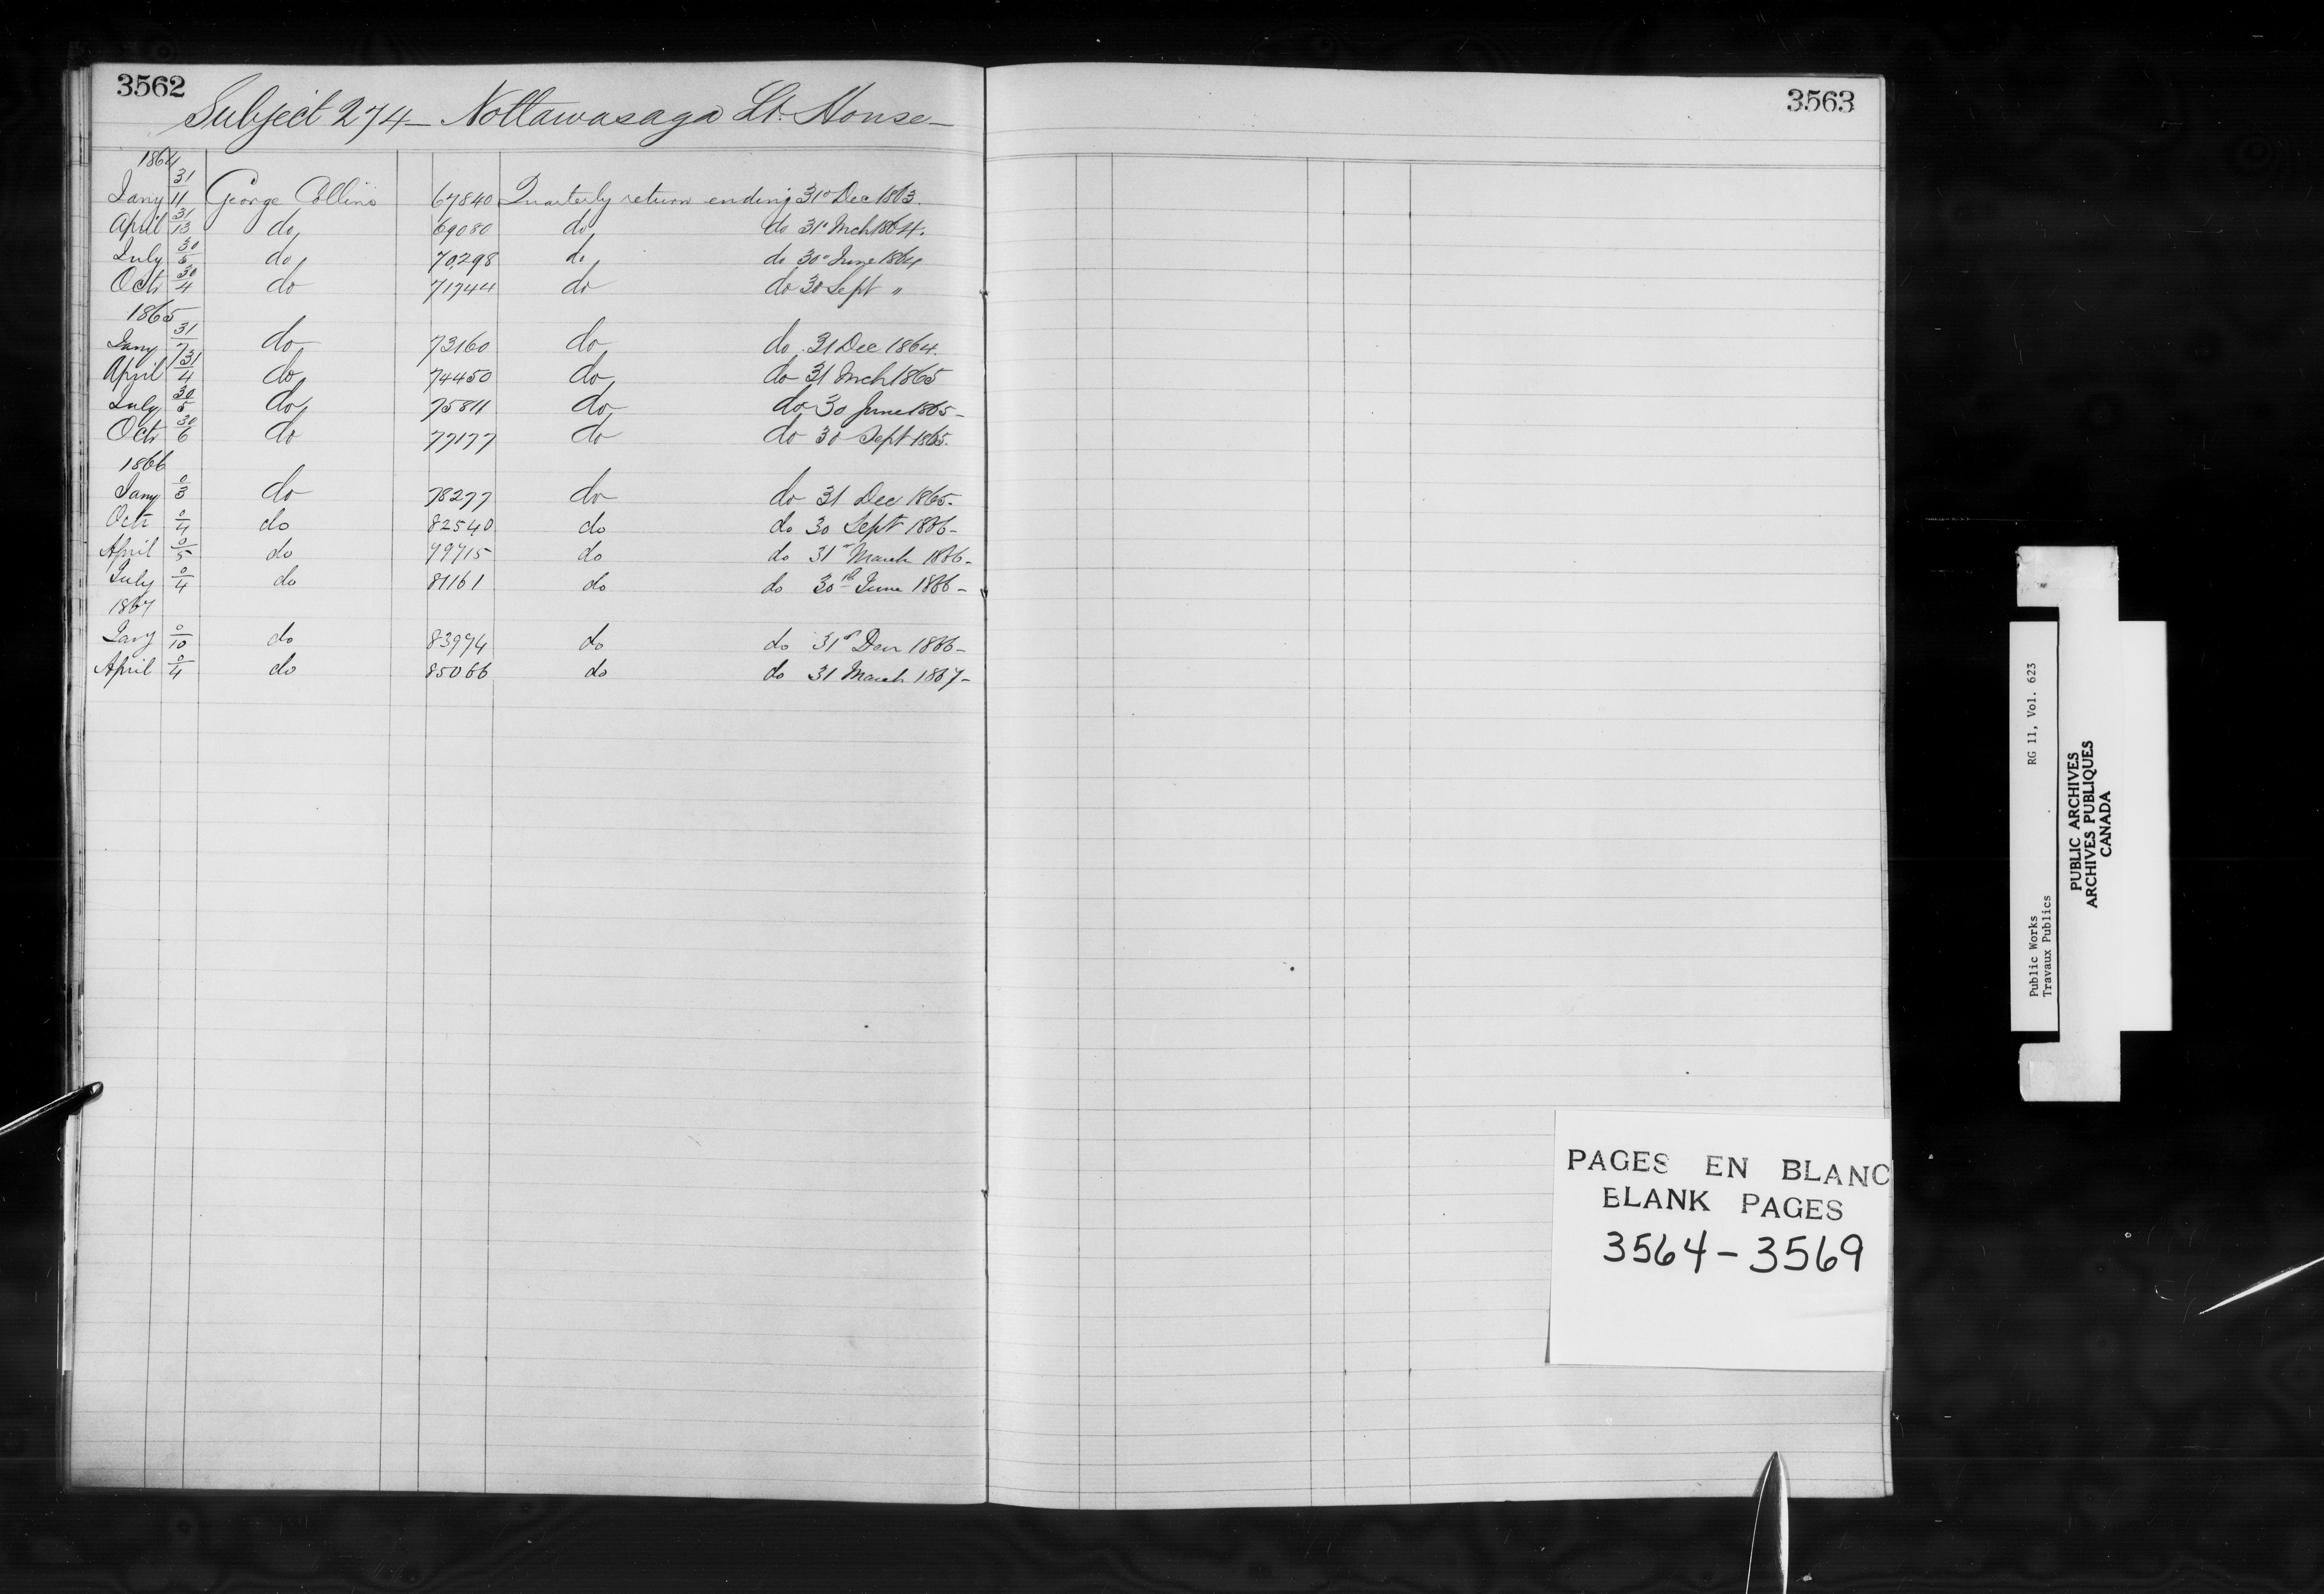 3562
Subject 274 - Nottawasaga Lt. House -
1864
Jany 31/11 George Collins 67840 Quarterly return ending 31st Dec 1863.
April 31/13 do, 69080 do, do 31st Mch 1864.
July 30/5 do, 70298 do, do 30th June 1864
Octr 30/4 do 71744 do do 30 Sept "
1865
Jany 31/7 do 73160 do do 31 Dec 1864.
April 31/4 do, 74450 do, do 31 Mch 1865
July 30/5 do, 75811 do, do 30 June 1865 -
Octr 30/6 do 77177 do do 30 Sept 1865.
1866
Jany 0/3 do 78277 do do 31 Dec 1865.
Octr 0/4 do 82540 do do 30 Sept 1866 -
April 0/5 do 79715 do do 31st March 1866 -
July 0/4 do 81161 do do 30th June 1866 -
1867
Jany 0/10 do 83974 do do 31st Decr 1866 -
April 0/4 do 85066 do do 31 March 1867 -
3563
PAGES EN BLANC
BLANK PAGES
3564 - 3569
Public Works RG 11, Vol. 623
Travaux Publics
PUBLIC ARCHIVES
ARCHIVES PUBLIQUES
CANADA